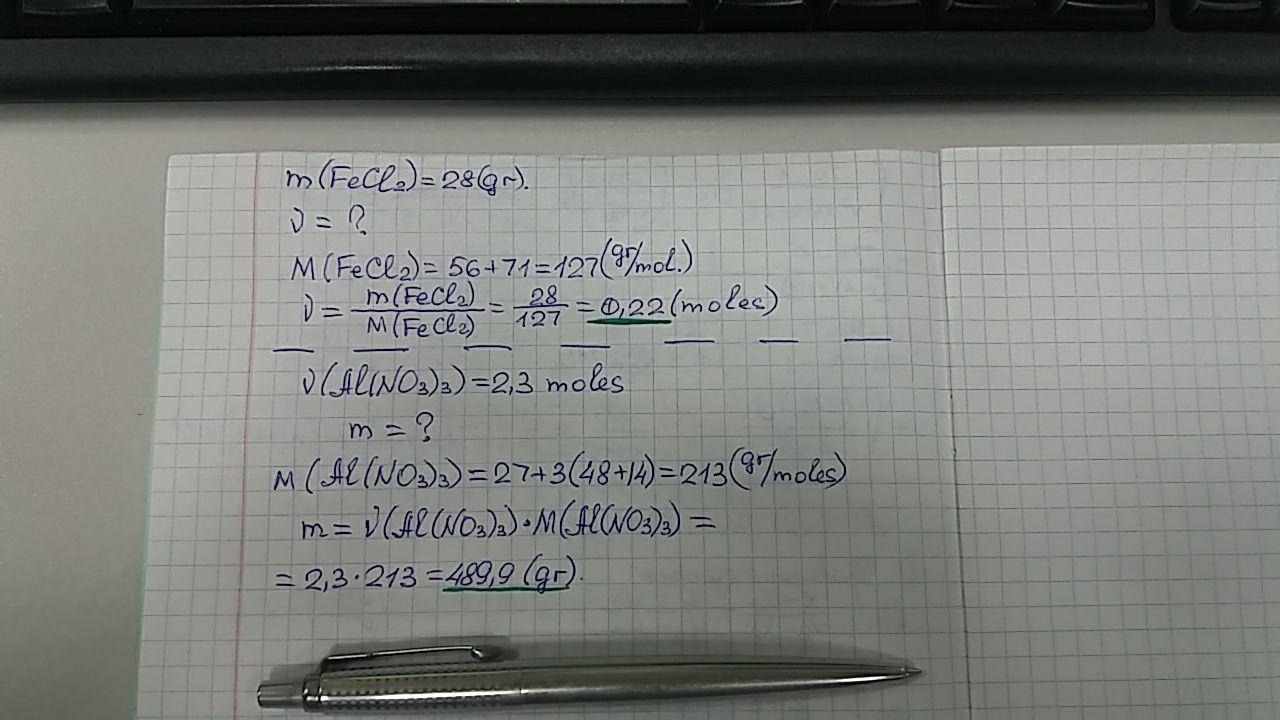 m(FeCl₂)=28(gr).
ν = ?
M(FeCl₂)= 56+71=127(gr/mol.)
ν = m(FeCl₂)/M(FeCl₂) = 28/127 = 0,22(moles)
ν(Al(NO₃)₃)=2,3 moles
m = ?
M(Al(NO₃)₃)=27+3(48+14)=213(gr/moles)
m = ν(Al(NO₃)₃)·M(Al(NO₃)₃) =
= 2,3·213 =489,9 (gr).